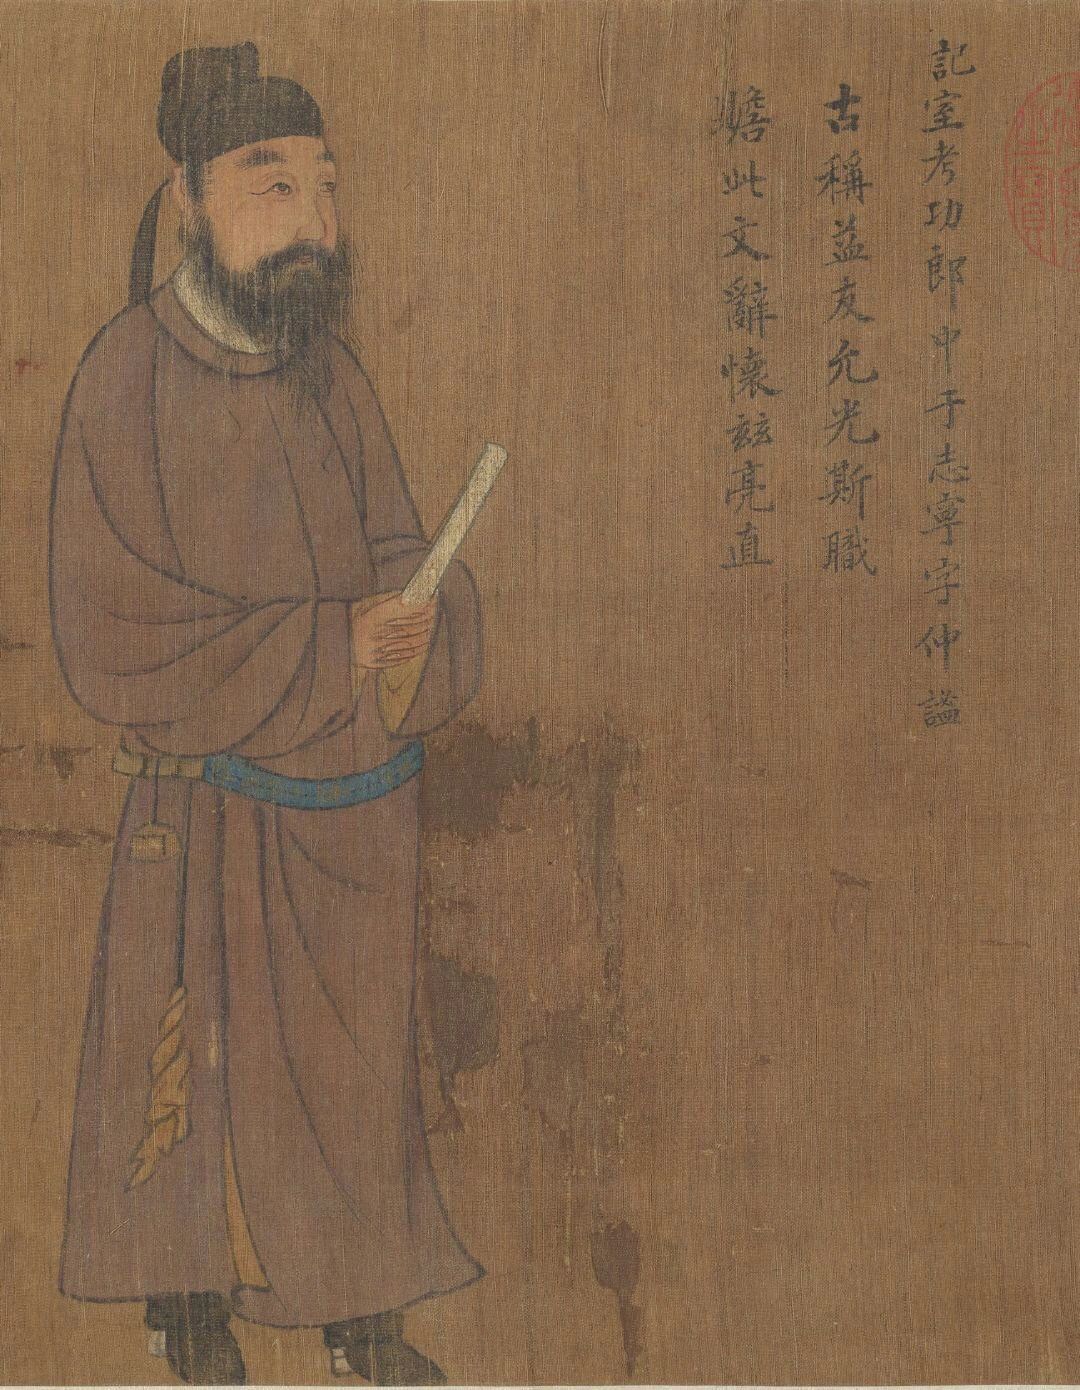 記室考功郎中于志寧字仲謐
古稱益友允光斯職
蟾此文辭懷茲亮直